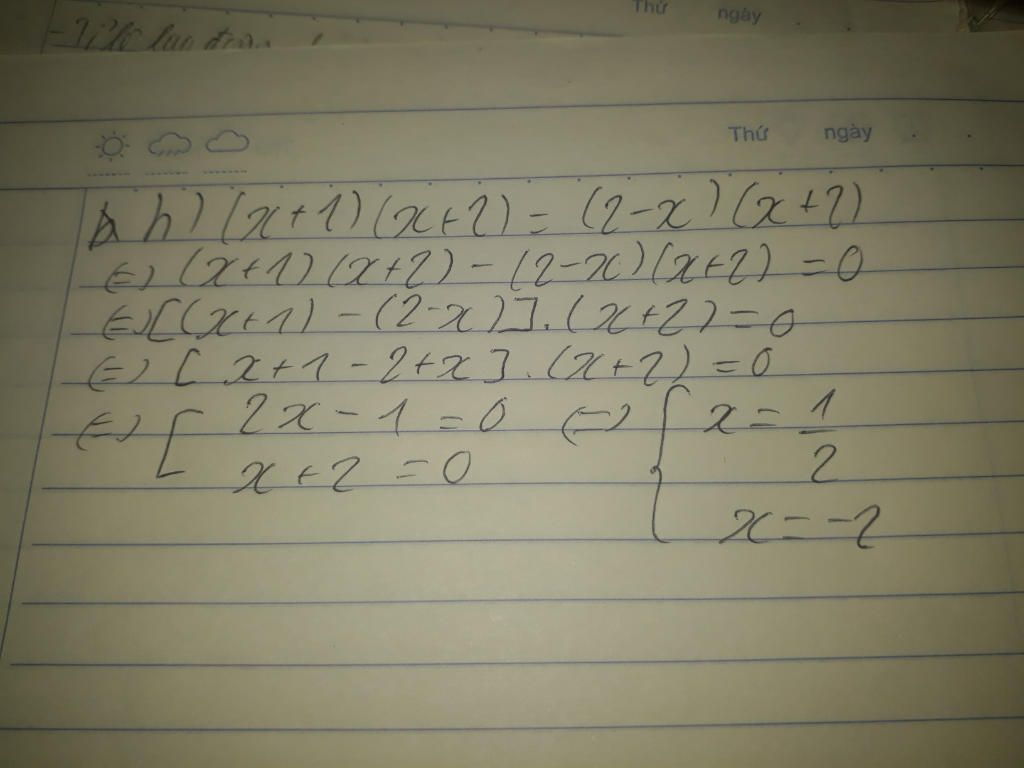 Thứ ngày
Thứ ngày
h) (x+1)(x+2) = (2-x)(x+2)
(=) (x+1)(x+2) - (2-x)(x+2) = 0
(=) [(x+1) - (2-x)].(x+2) = 0
(=) [x+1-2+x].(x+2) = 0
(=) [ 2x - 1 = 0 (=) { x = 1/2
x+2 = 0 x = -2